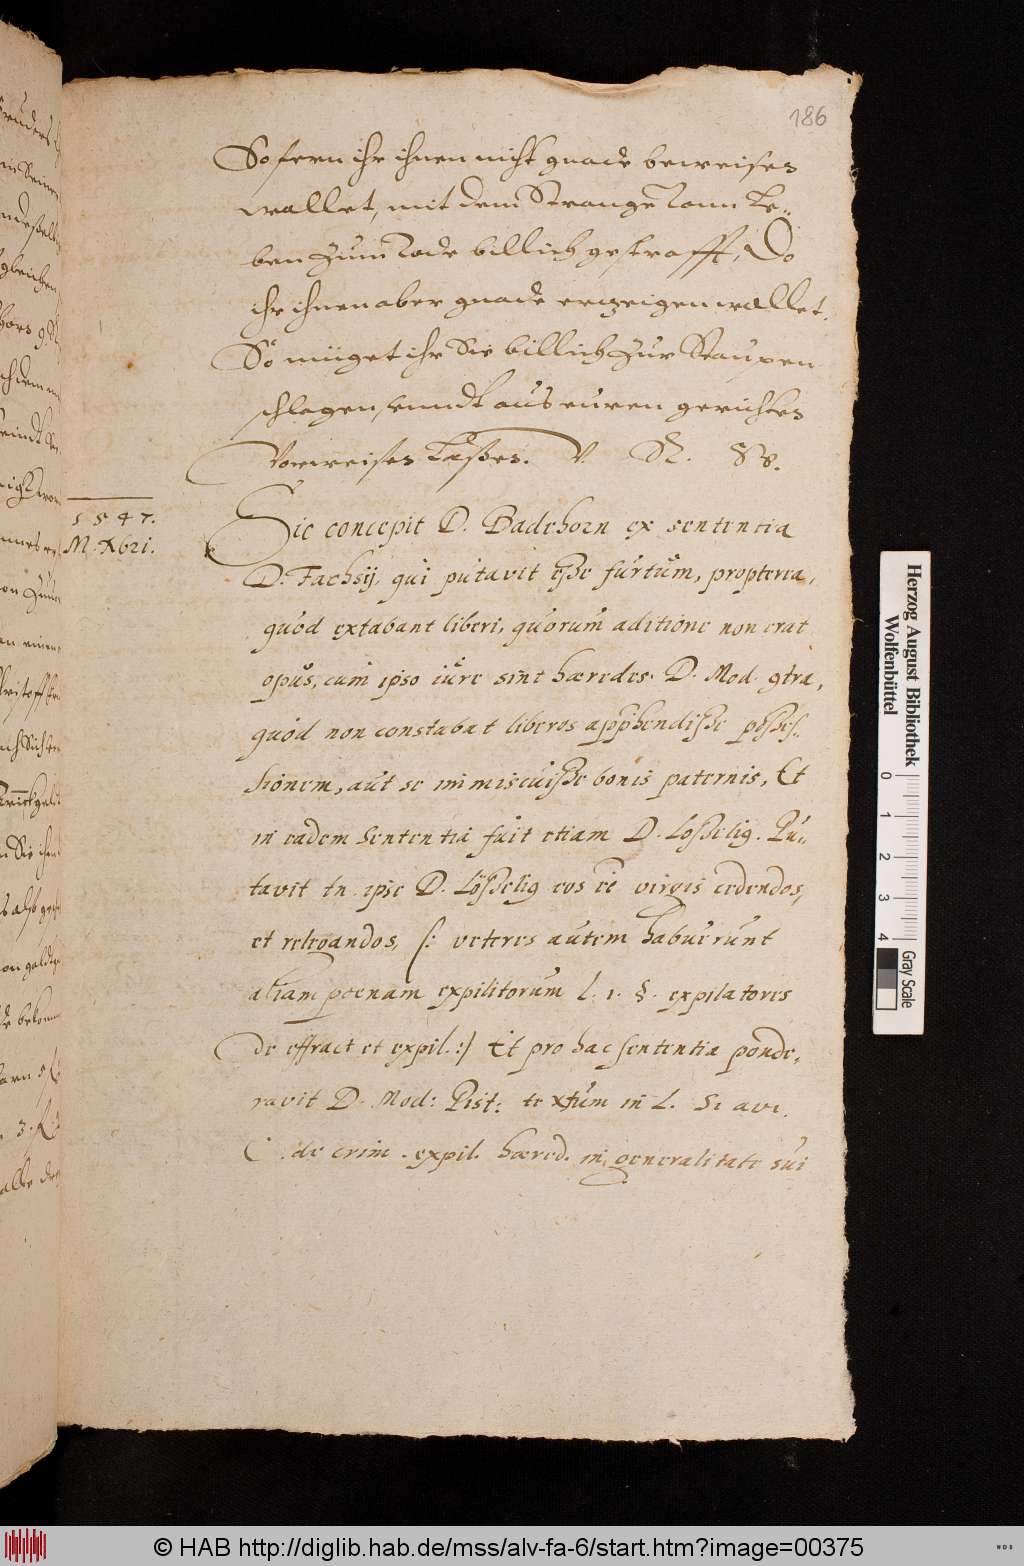 186
Sofern ihr ihnen nicht gnade beweisen
wollet, mit dem Strange vom Le-
ben zum Tode billich gestrafft, Do
ihr ihnen aber gnade erzeigen wollet,
So müget ihr Sie billich zur Staupen
schlagen, unndt aus euren gerichten
vorweisen laßen. V.
1547.
M. Xbri.
Sic concepit D. Badehorn ex sententia
D. Fachsij, qui putavit eße furtum, propterea,
quod extabant liberi, quorum aditione non erat
opus, cum ipso iure sint hæredes. D. Mod. 9tra,
quod non constabat liberos appħendiße poßes-
sionem, aut se immiscuiße bonis paternis, Et
in eadem sententia fuit etiam D. Loßelig. Pu-
tavit tn ipse D. Lößelig eos eē virgis cedendos,
et relegandos, /: veteres autem habuerunt
aliam poenam expilitorum l. 1. §. expilatores
de effract et expil. :/ Et pro hac sententia ponde-
ravit D. Mod: Pist: textum in L. Si avi.
C. de crim. expil. hæred. in generalitate sui
Herzog August Bibliothek
Wolfenbüttel
0 1 2 3 4
Gray Scale
© HAB http://diglib.hab.de/mss/alv-fa-6/start.htm?image=00375